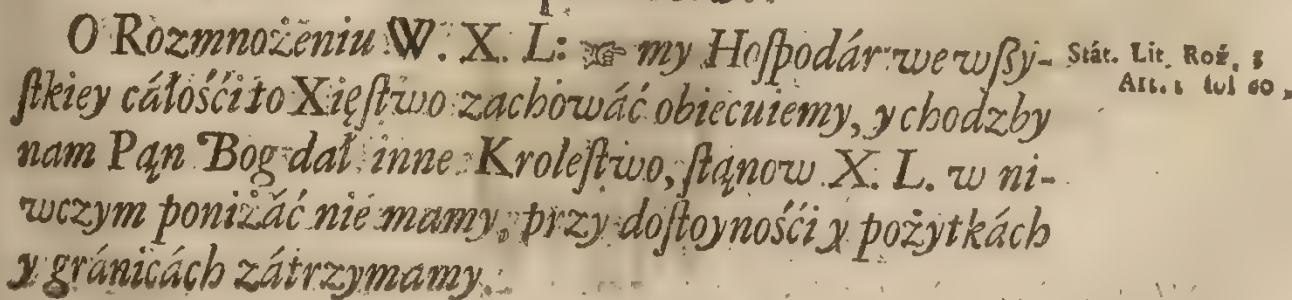 O Rozmnożeniu W. X. L: ☞ my Hoſpodár we wſzy-
ſtkiey cáłośći to Xięſtwo zachowáć obiecuiemy, y chodzby
nam Pąn Bog dał inne Kroleſtwo, ſtąnow X. L. w ni-
wczym poniżáć nie mamy, przy doſtoynośći y pożytkách
y gránicách zátrzymamy.
Stát. Lit. Roź. 3
Art. 1 fol 60,